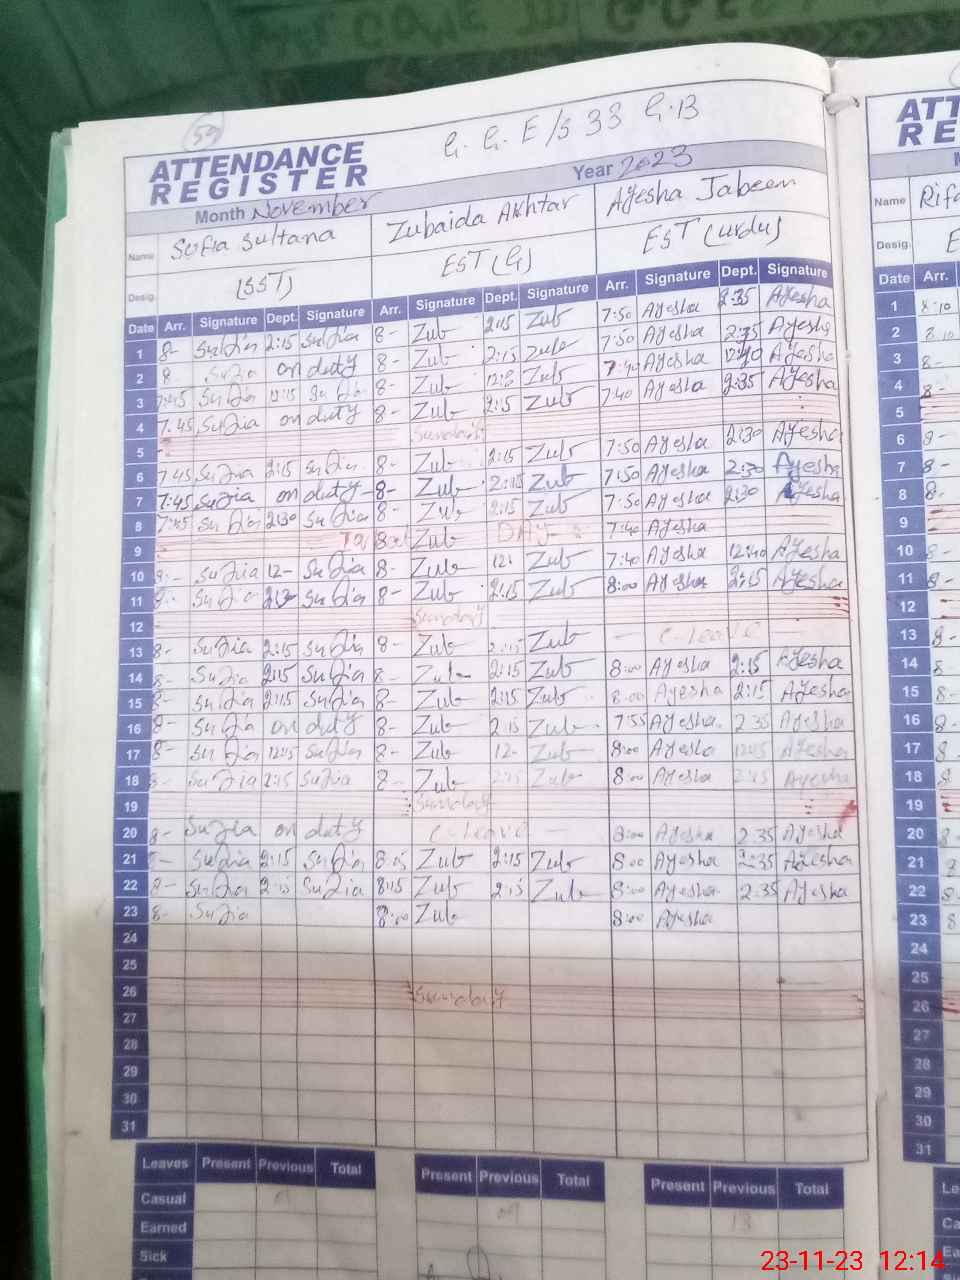 59
G. G. E/S 33 G.B
ATTENDANCE
REGISTER
Month November Year 2023
Name Sufia Sultana Zubaida Akhtar Ayesha Jabeen
Desig. (SST) EST (G) EST (urdu)
Date Arr. Signature Dept. Signature Arr. Signature Dept. Signature Arr. Signature Dept. Signature
1 8- Sufia 2:15 Sufia 8- Zub 2:15 Zub 7:50 Ayesha 2:35 Ayesha
2 8 Sufia on duty 8- Zub 2:15 Zub 7:50 Ayesha 2:35 Ayesha
3 7:45 Sufia 12:15 Sufia 8- Zub Zub 7:40 Ayesha 12:40 Ayesha
4 7:45 Sufia on duty 8- Zub 2:15 Zub 7:40 Ayesha 2:35 Ayesha
5 Sunday
6 7:45 Sufia 2:15 Sufia 8- Zub 2:15 Zub 7:50 Ayesha 2:30 Ayesha
7 7:45 Sufia on duty 8- Zub 2:15 Zub 7:50 Ayesha 2:30 Ayesha
8 7:45 Sufia 2:30 Sufia 8- Zub 2:15 Zub 7:50 Ayesha 2:30 Ayesha
9 8 Zub DAY 7:40 Ayesha
10 8- Sufia 12- Sufia 8- Zub 12- Zub 7:40 Ayesha 12:40 Ayesha
11 8- Sufia Sufia 8- Zub 2:15 Zub 8:00 Ayesha 2:15 Ayesha
12 Sunday
13 8- Sufia 2:15 Sufia 8- Zub 2:15 Zub - C-Leave -
14 8- Sufia 2:15 Sufia 8- Zub 2:15 Zub 8:00 Ayesha 2:15 Ayesha
15 8- Sufia 2:15 Sufia 8- Zub 2:15 Zub 8:00 Ayesha 2:15 Ayesha
16 8- Sufia on duty 8- Zub 2:15 Zub 7:55 Ayesha 2:35 Ayesha
17 8- Sufia 12:15 Sufia 8- Zub 12- Zub 8:00 Ayesha 12:15 Ayesha
18 8- Sufia 2:15 Sufia 8- Zub 2:15 Zub 8:00 Ayesha 2:15 Ayesha
19 Sunday
20 8- Sufia on duty C-Leave - 8:00 Ayesha 2:35 Ayesha
21 8- Sufia 2:15 Sufia 8:15 Zub 2:15 Zub 8:00 Ayesha 2:35 Ayesha
22 8- Sufia 2:15 Sufia 8:15 Zub 2:15 Zub 8:00 Ayesha 2:35 Ayesha
23 8- Sufia 8:00 Zub 8:00 Ayesha
24
25
26 Sunday
27
28
29
30
31
Leaves Present Previous Total Present Previous Total Present Previous Total
Casual
Earned
Sick
ATT
RE
Name Rifa
Desig. E
Date Arr.
1 8:10
2 8:10
3 8-
4 8-
5
6 8-
7 8-
8 8-
9
10 8-
11 8-
12
13 8-
14 8-
15 8-
16 8-
17 8
18 8
19
20 8-
21
22 8
23 8
24
25
26
27
28
29
30
31
Le
Ca
Ea
23-11-23 12:14